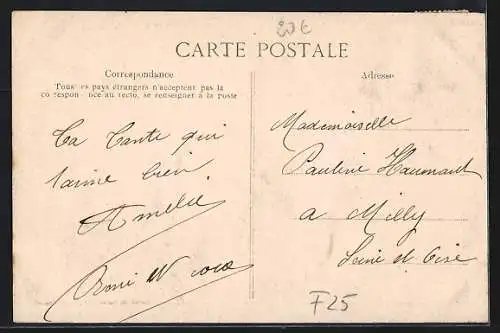 20€
CARTE POSTALE
Correspondance
Tous les pays étrangers n'acceptent pas la
correspondance au recto, se renseigner à la poste
Adresse
Ta Tante qui
t'aime bien
Amélie
Mademoiselle
Pauline
a Milly
Seine et Oise
F25